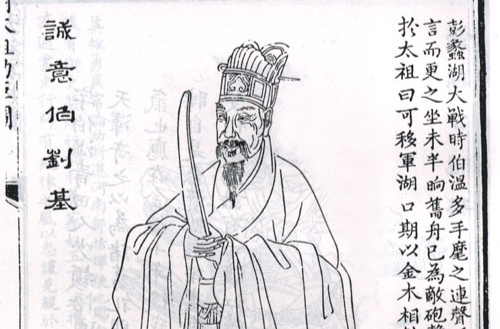 彭蠡湖大戰時伯溫多手麾之連聲
言而更之坐未半晌舊舟已為敵砲
於太祖曰可移軍湖口期以金木相
誠意伯劉基